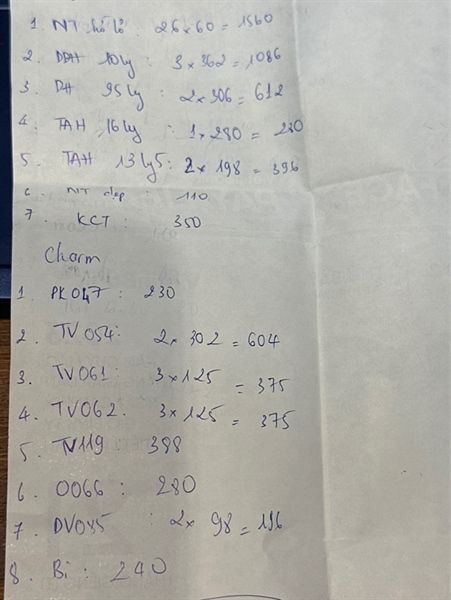 1. NT hồ lô : 26 x 60 = 1560
2. DDH 10 ly : 3 x 362 = 1086
3. DH 95 ly : 2 x 306 = 612
4. TAH 16 ly : 1 x 280 = 280
5. TAH 13 ly5 : 2 x 198 = 396
6. NIT dẹp : 110
7. KCT : 350
Charm
1. PK047 : 230
2. TV054 : 2 x 302 = 604
3. TV061 : 3 x 125 = 375
4. TV062 : 3 x 125 = 375
5. TV119 388
6. 0066 : 280
7. DV085 : 2 x 98 = 196
8. Bi : 240